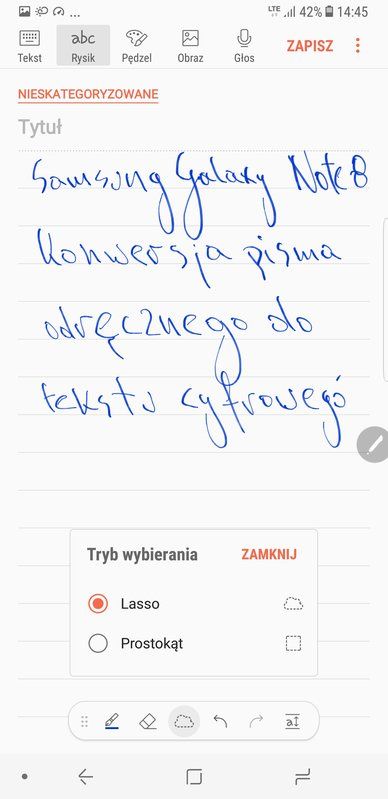 ... LTE 42% 14:45
Tekst abc Rysik Pędzel Obraz Głos ZAPISZ
NIESKATEGORYZOWANE
Tytuł
Samsung Galaxy Note8
Konwersja pisma
odręcznego do
tekstu cyfrowego
Tryb wybierania ZAMKNIJ
Lasso
Prostokąt
a